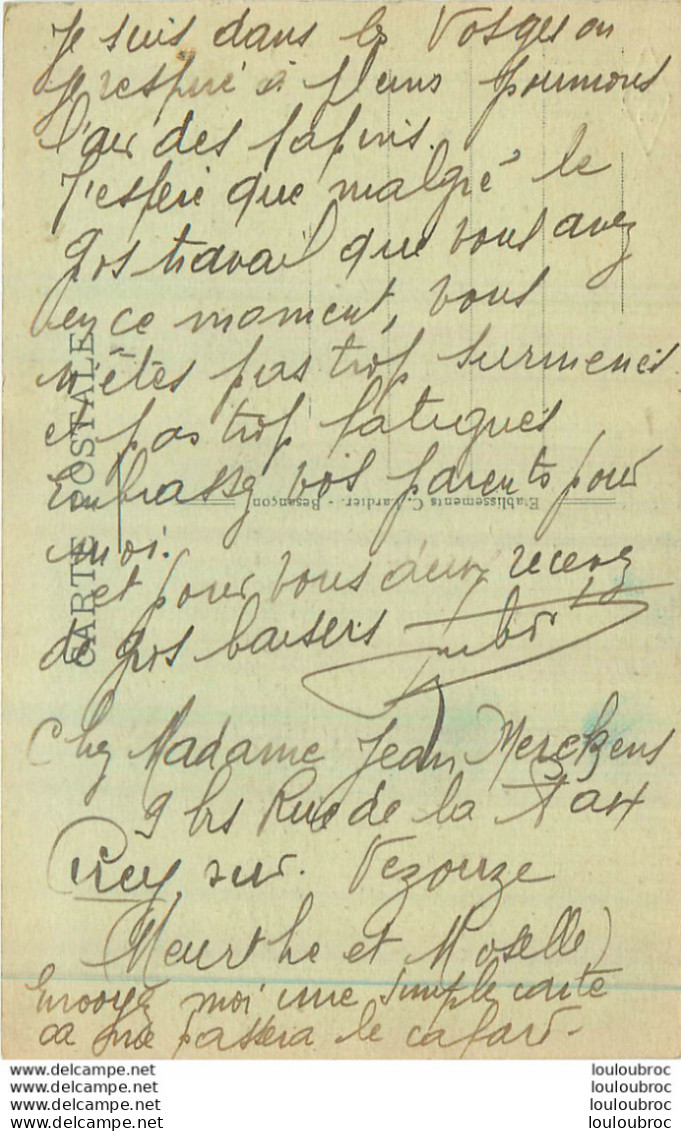 Je suis dans les Vosges ou
je respire à pleins poumons
l'air des sapins.
J'espère que malgré le
gros travail que vous avez
en ce moment, vous
n'êtes pas trop surmenés
et pas trop fatigués
Embrassez vos parents pour
moi.
et pour vous deux recevez
de gros baisers
Chez Madame Jean Merckens
9 bis Rue de la
Cirey sur Vezouze
(Meurthe et Moselle)
Envoyez moi une simple carte
ça me passera le cafard.
CARTE POSTALE
Etablissements C. Lardier. - Besançon
www.delcampe.net
www.delcampe.net
www.delcampe.net
www.delcampe.net
louloubroc
louloubroc
louloubroc
louloubroc